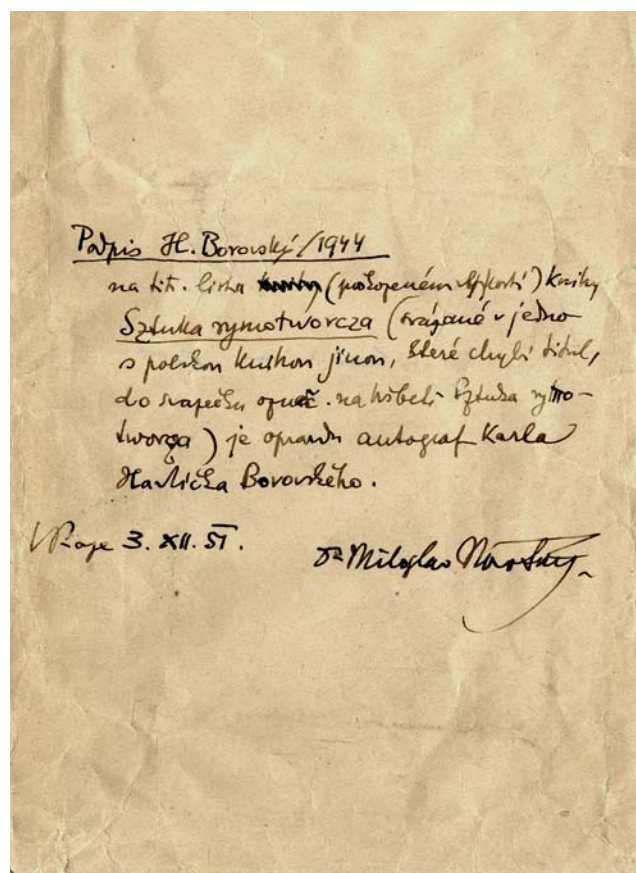 Podpis H. Borovský / 1944
na tit. listu (pošozeném) knihy
Sztuka rymotworcza (svázané v jedno
s polskou knihou jinou, které chybí titul,
do svazečku. na hřbetě Sztuka rymo-
tworcza) je opravdu autograf Karla
Havlíčka Borovského.
V Praze 3. XII. 51.
Dr Miloslav Novotný